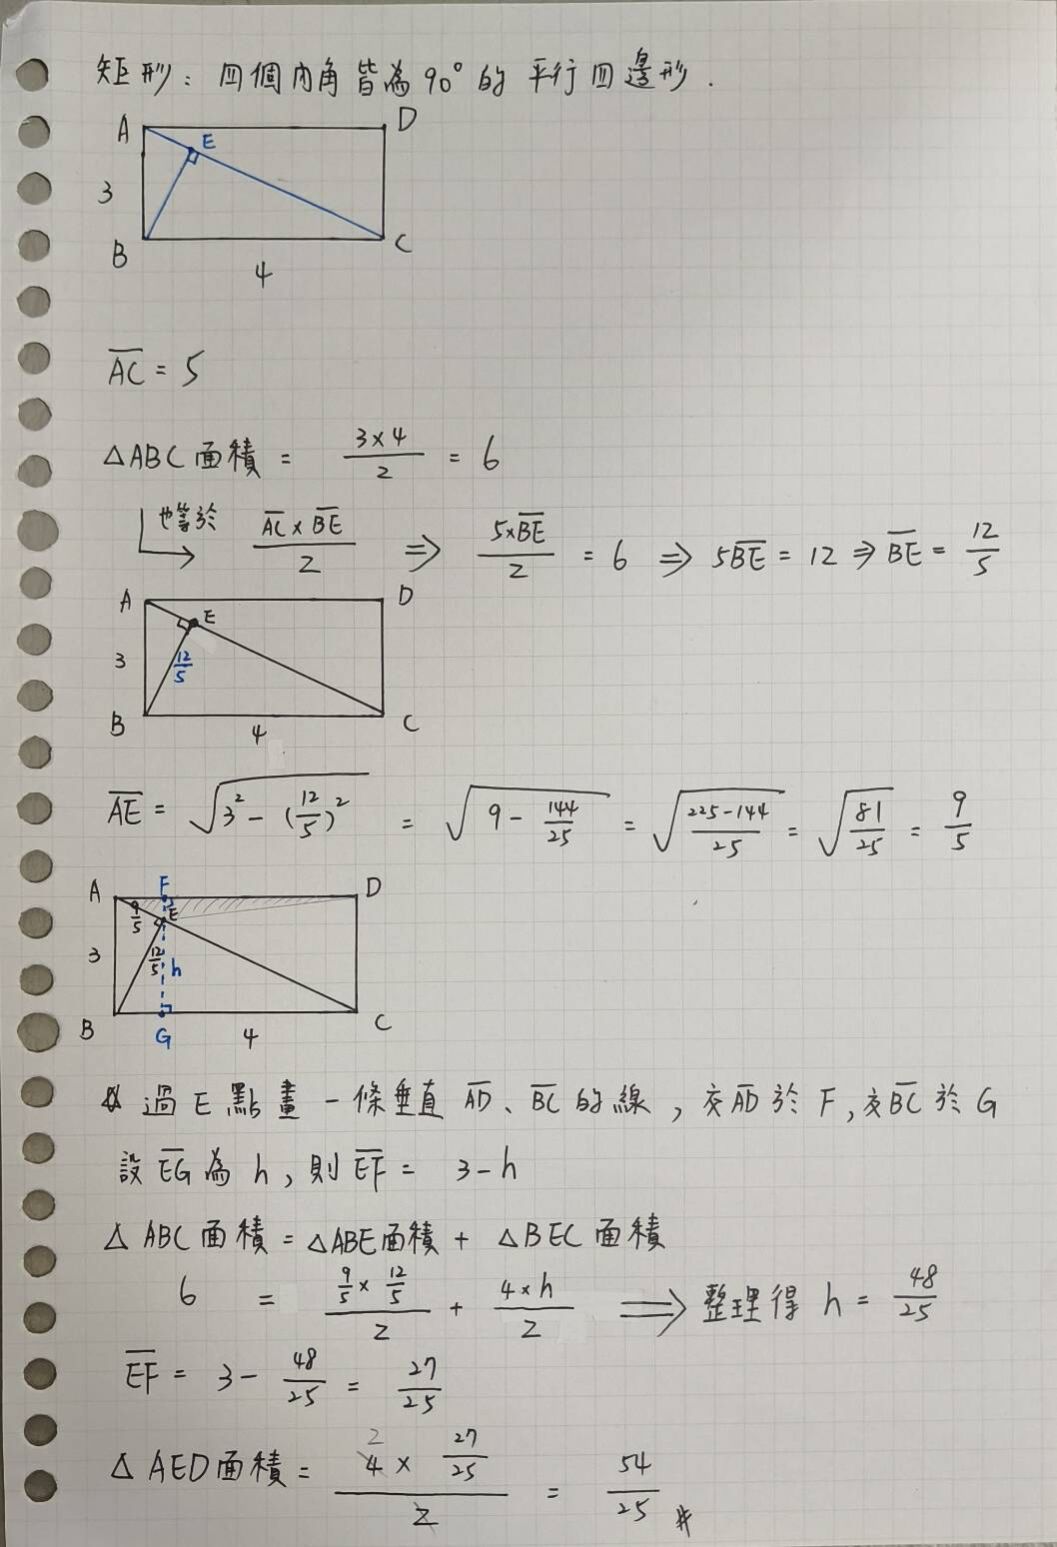 矩形：四個內角皆為90°的平行四邊形.
A D E 3 B 4 C
AC = 5
△ABC面積 = 3×4/2 = 6
也等於 AC×BE/2 ⇒ 5×BE/2 = 6 ⇒ 5BE = 12 ⇒ BE = 12/5
A D E 3 12/5 B 4 C
AE = √(3² - (12/5)²) = √(9 - 144/25) = √((225-144)/25) = √(81/25) = 9/5
A F D 9/5 E 3 12/5 h B G 4 C
過E點畫一條垂直AD、BC的線，交AD於F,交BC於G
設EG為h，則EF = 3-h
△ABC面積 = △ABE面積 + △BEC面積
6 = (9/5 × 12/5)/2 + (4×h)/2 ⟹ 整理得 h = 48/25
EF = 3 - 48/25 = 27/25
△AED面積 = (4 × 27/25)/2 = 54/25 #
2